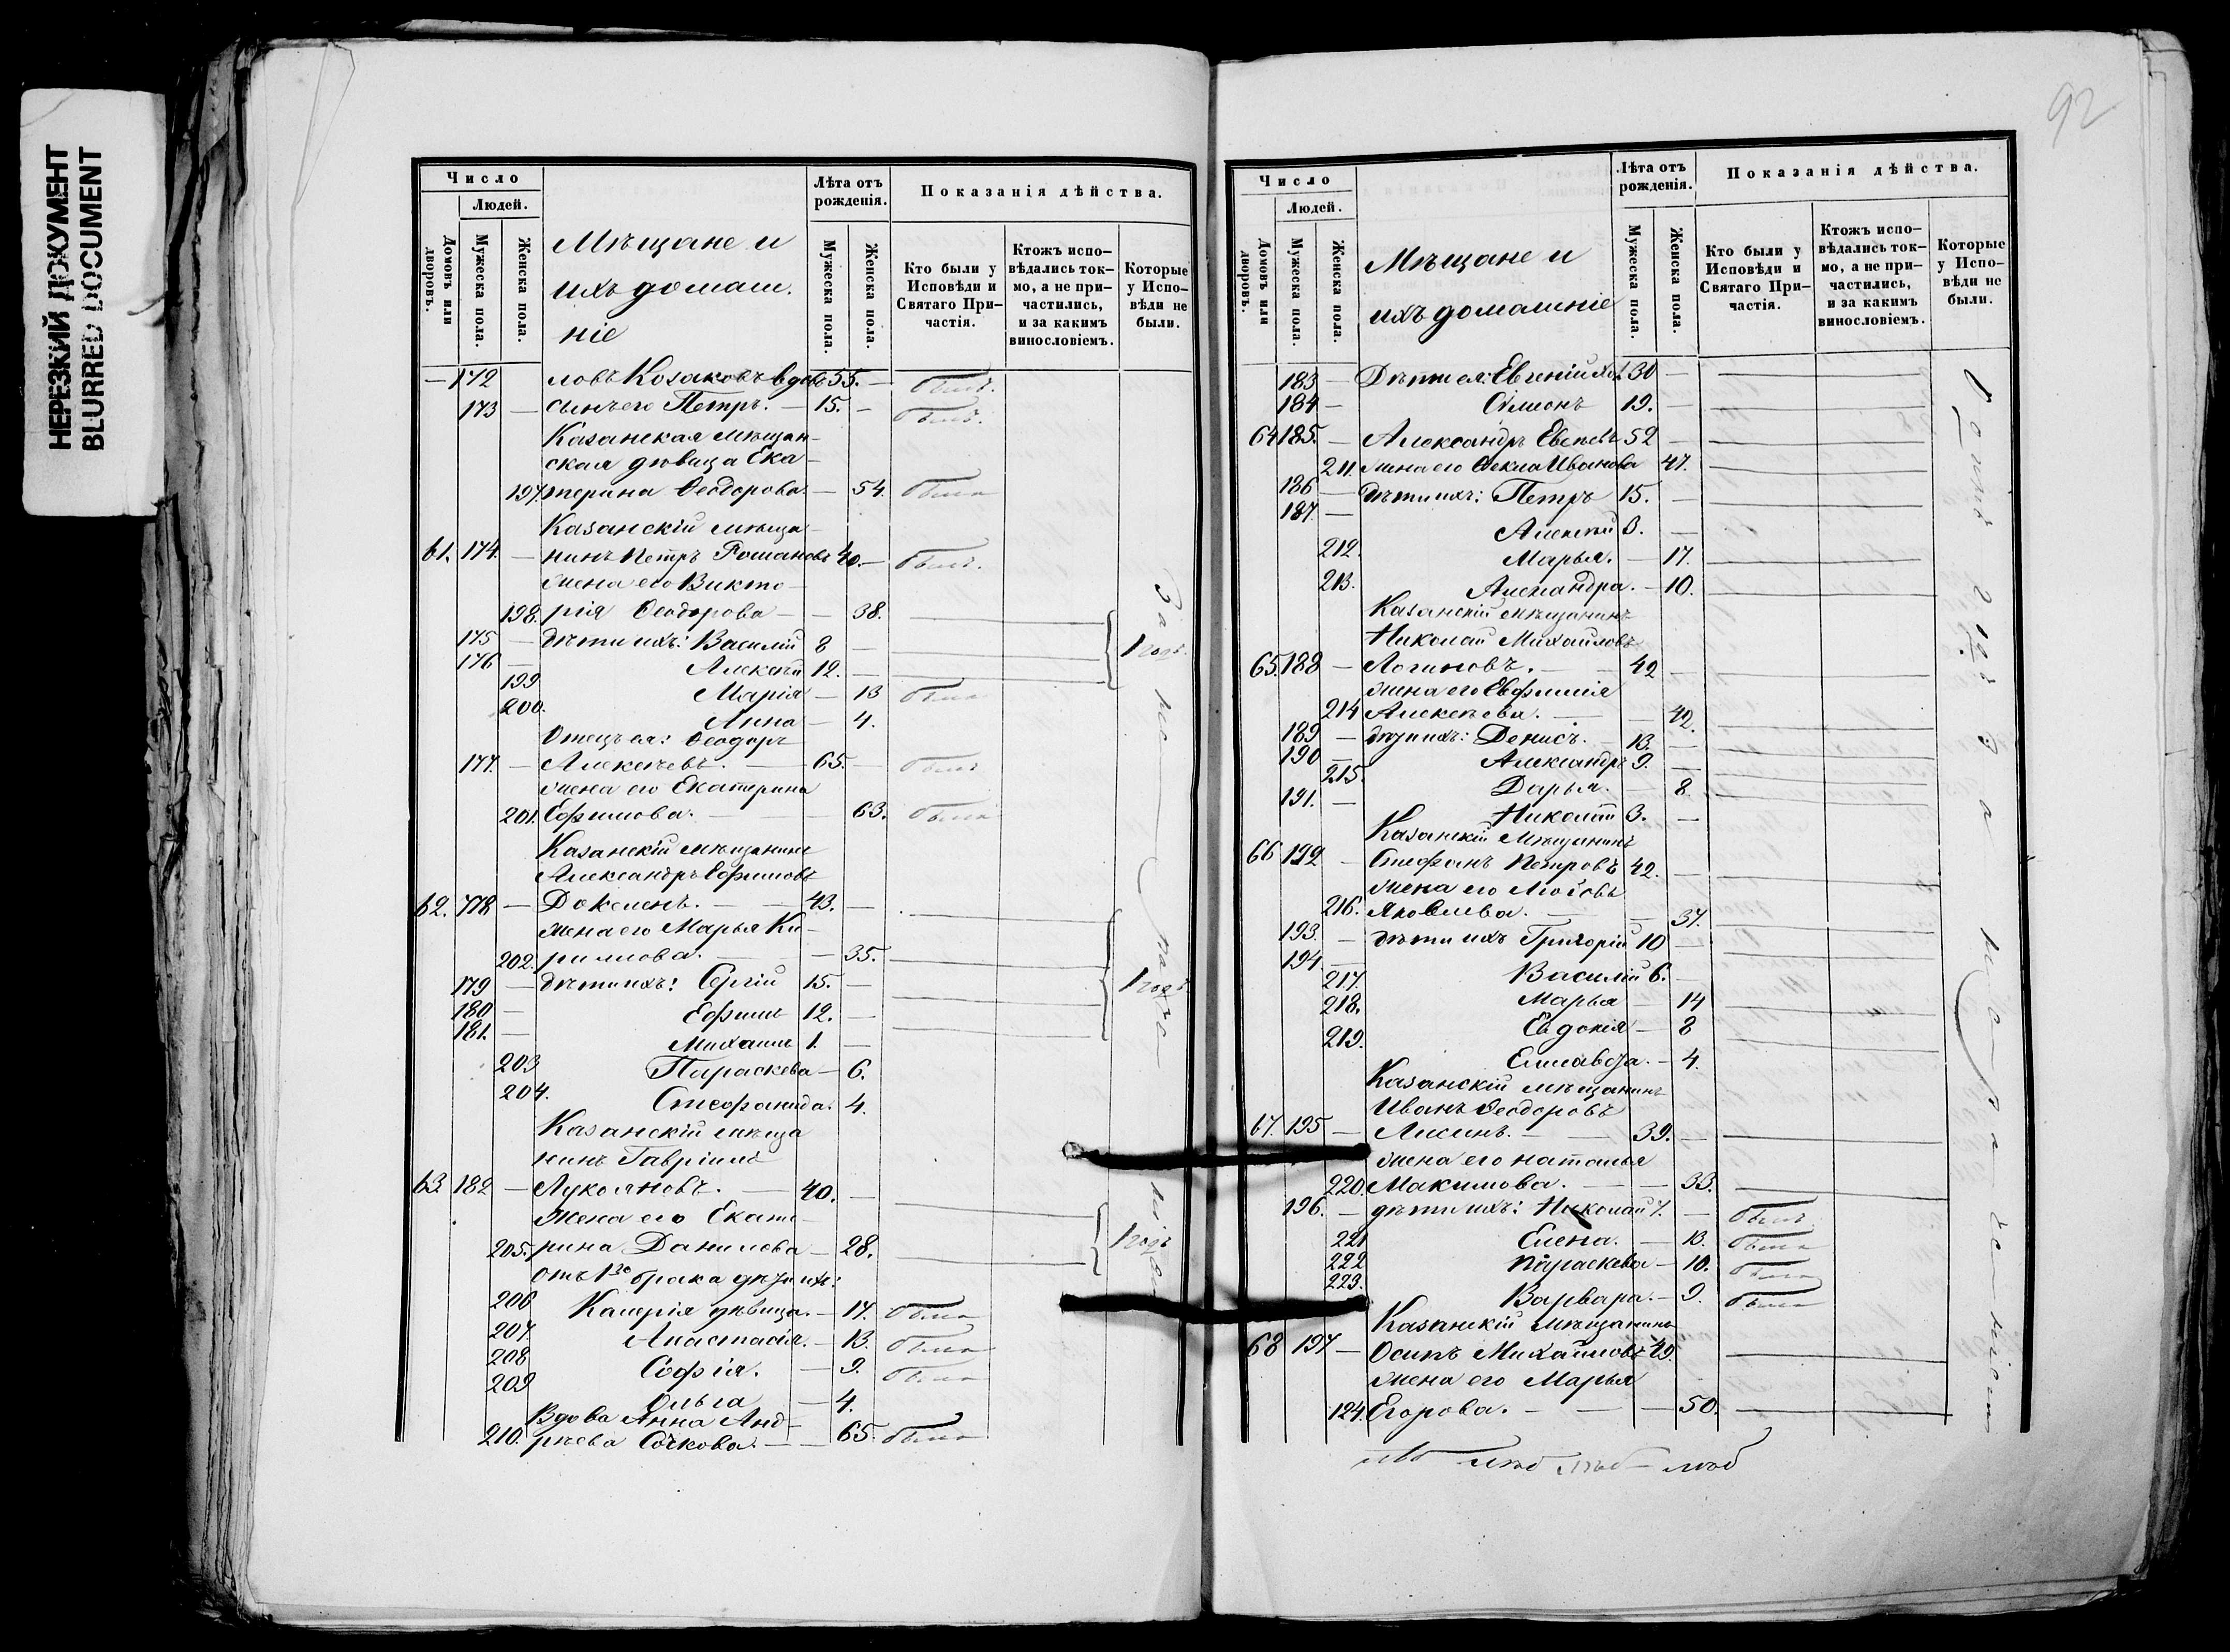 НЕРЕЗКИЙ ДОКУМЕНТ
BLURRED DOCUMENT
Число
Людей.
Домовъ или дворовъ.
Мужеска пола.
Женска пола.
Мѣщане и
ихъ домаш.
ніе
Лѣта отъ рожденія.
Мужеска пола.
Женска пола.
Показанія дѣйства.
Кто были у Исповѣди и Святаго Причастія.
Ктожъ исповѣдались токмо, а не причастились, и за какимъ винословіемъ.
Которые у Исповѣди не были.
— 172 ловъ Козаковъ вдов 55. — былъ.
173 — сынъ его Петръ. — 15. — былъ.
Казанская мѣщан-
ская дѣвица Ека-
197. терина Ѳеодорова. — 54. была
Казанскій мѣща-
61. 174. — нинъ Петръ Романовъ 40. — былъ.
жена его Викто-
198. рія Ѳеодорова — — 38.
175 — дѣти ихъ: Василій 8 — 1 годъ.
176 — Алексѣй 12. —
199 Марія — 13 была
200. Анна — 4.
Отецъ ея: Ѳеодоръ
177. — Алексѣевъ. — 65. — былъ
жена его Екатерина
201. Ефимова. — — 63. была
Казанскій мѣщанинъ
Александръ Ефимовъ
62. 178 — Доксменъ. — — 43. —
жена его Марья Ки-
202. риллова. — — 35.
179 — дѣти ихъ: Сергій 15. — 1 годъ.
180 — Ефимъ 12. —
181. — Михаилъ 1. —
203 Параскева — 6.
204. Стефанида. 4.
Казанскій мѣща
нинъ Гавріилъ
63. 182 — Лукояновъ. — 40. —
жена его Екате-
205. рина Данилова — 28. 1 годъ
отъ 1го брака дѣти ихъ:
206 Калерія дѣвица. — 17. была
207 Анастасія. — 13. была
208 Софія. — 9. была
209 Ольга — 4.
Вдова Анна Анд-
210. рѣева Сочкова. — — 65. была
92
Число
Людей.
Домовъ или дворовъ.
Мужеска пола.
Женска пола.
Мѣщане и
ихъ домашніе
Лѣта отъ рожденія.
Мужеска пола.
Женска пола.
Показанія дѣйства.
Кто были у Исповѣди и Святаго Причастія.
Ктожъ исповѣдались токмо, а не причастились, и за какимъ винословіемъ.
Которые у Исповѣди не были.
183 — Дѣти ея: Евгеній хол. 30 —
184 — Симеонъ 19. —
64 185. — Александръ Евсеевъ 52 —
211. жена его Ѳекла Иванова 47.
186 — дѣти ихъ: Петръ 15. —
187. — Алексѣй 3. —
212. Марья. — 17.
213. Александра. — 10.
Казанскій мѣщанинъ
Николай Михайловъ
65. 188 — Логиновъ. — 42 —
жена его Евфимія
214 Алексѣева. — — 42.
189 — дѣти ихъ: Денисъ. — 13. —
190 — Александръ 9. —
215. Дарья. — 8.
191. — Николай 3. —
Казанскій мѣщанинъ
66 192 — Стефанъ Петровъ 42. —
жена его Любовь
216. Яковлева. — — 37.
193. — дѣти ихъ Григорій 10 —
194 — Василій 6. —
217. Марья — 14
218. Евдокія — 8
219. Елисавета. — 4.
Казанскій мѣщанинъ
Иванъ Ѳеодоровъ
67. 195 — Лисинъ. — — 39. —
жена его наталья
220. Максимова. — — 33.
196. — дѣти ихъ: Николай 7. — былъ.
221 Елена. — 13. была
222 Параскева — 10. была
223. Варвара. — 9. была
Казанскій мѣщанинъ
68 197 — Осипъ Михайловъ 49.
жена его Марья
124. Егорова. — — — 50.